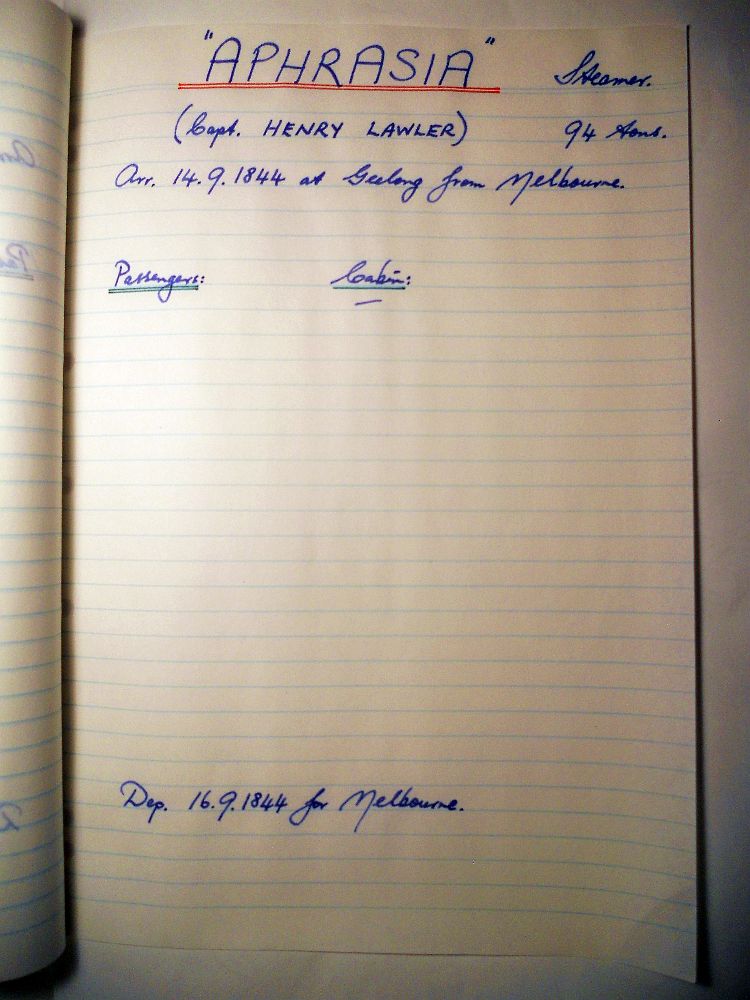 "APHRASIA" Steamer.
(Capt. HENRY LAWLER) 94 tons.
Arr. 14.9.1844 at Geelong from Melbourne.
Passengers: Cabin:
—
Dep. 16.9.1844 for Melbourne.